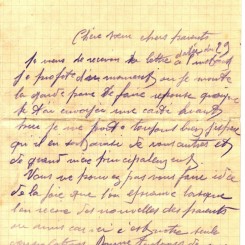 Chère sœur chers parents
Je viens de recevoir ta lettre datée du 29
je profite du moment ou je monte
la garde pour te faire réponse quoique
je t'ai envoyer une carte avant
moi je me porte toujours
qu'il en soit de vous autres et
de grand mère principalement
Vous ne pouvez pas vous faire idée
de la joie que l'on éprouve lorsque
l'on reçoit des nouvelles des parents
ou amis car ici c'est notre seule